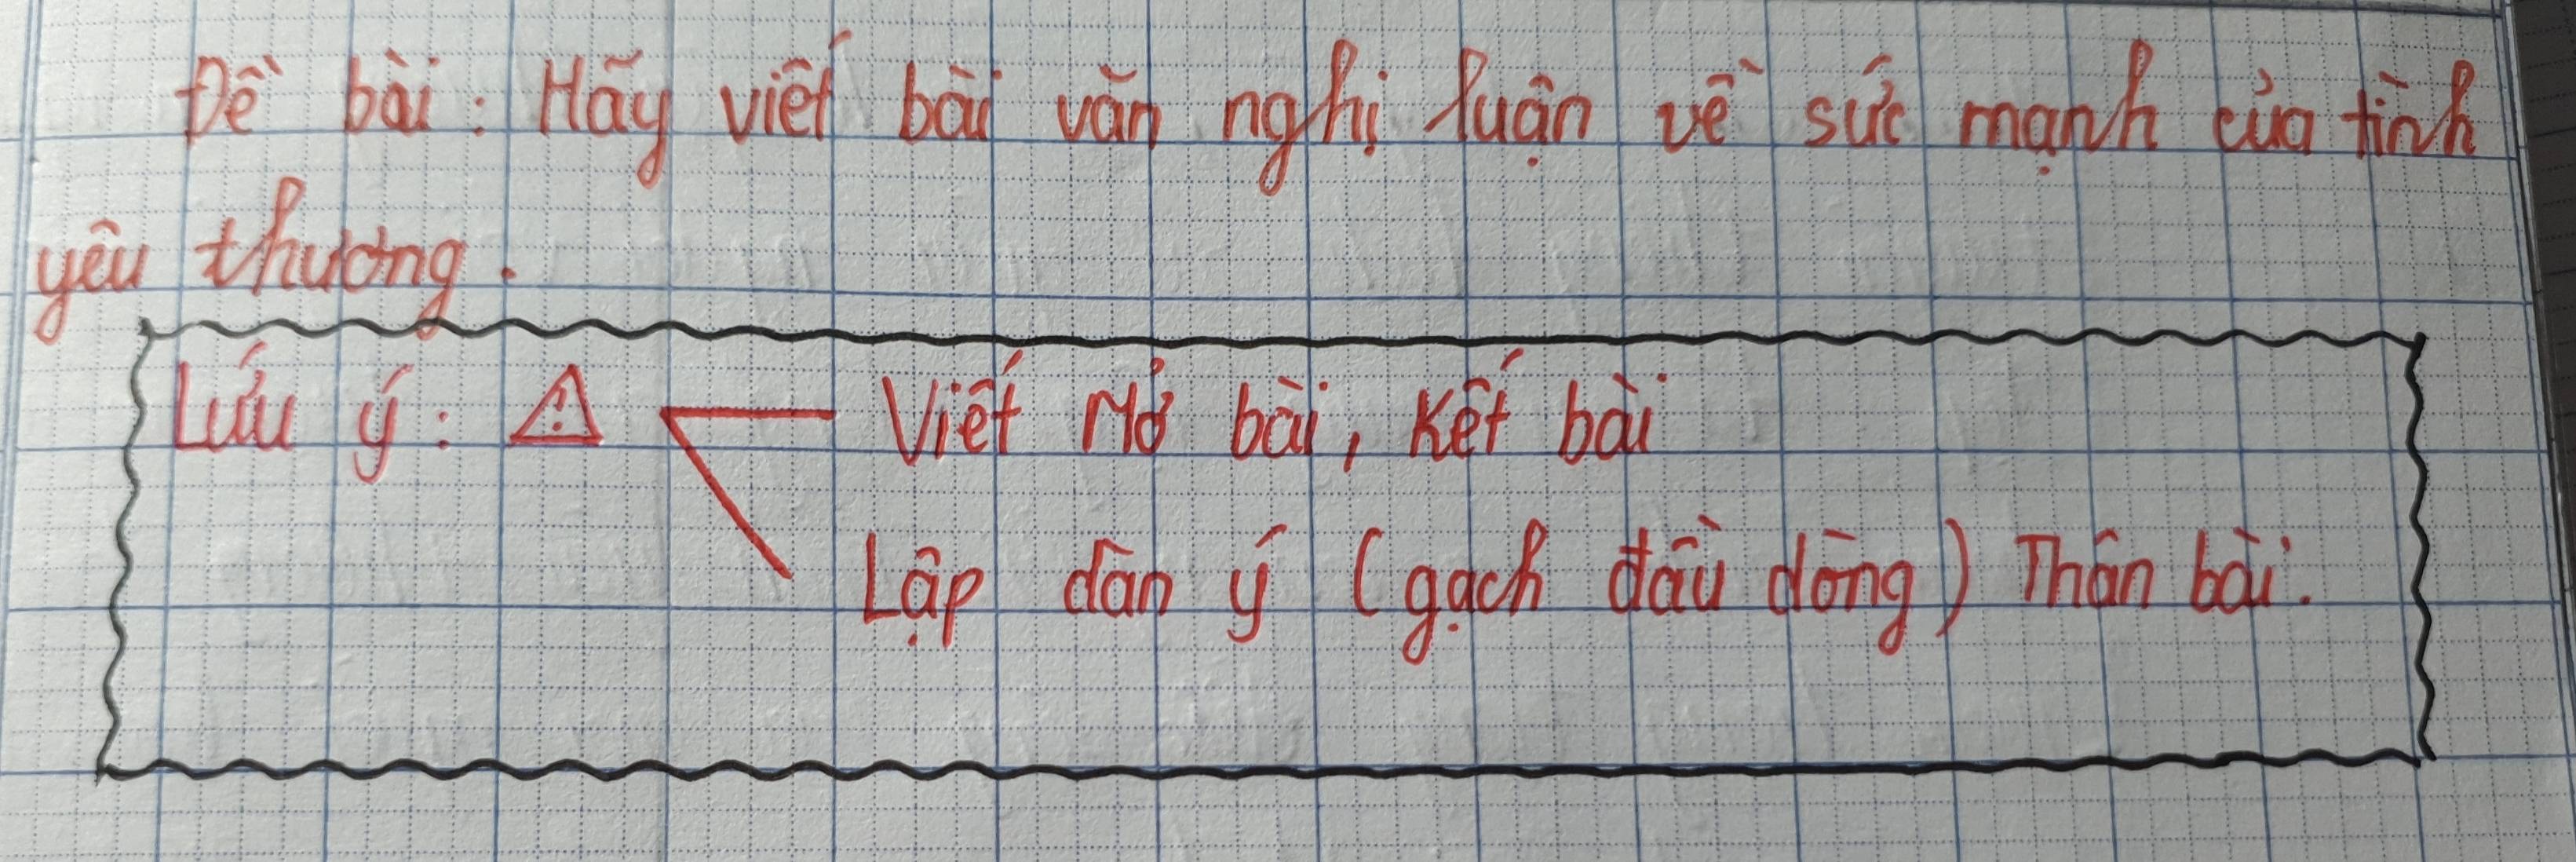 Đề bài : Hãy viết bài văn nghị luận về sức mạnh của tình
yêu thương.
Lưu ý : ⚠ Viết Mở bài, Kết bài
Lập dàn ý (gạch đầu dòng) Thân bài.